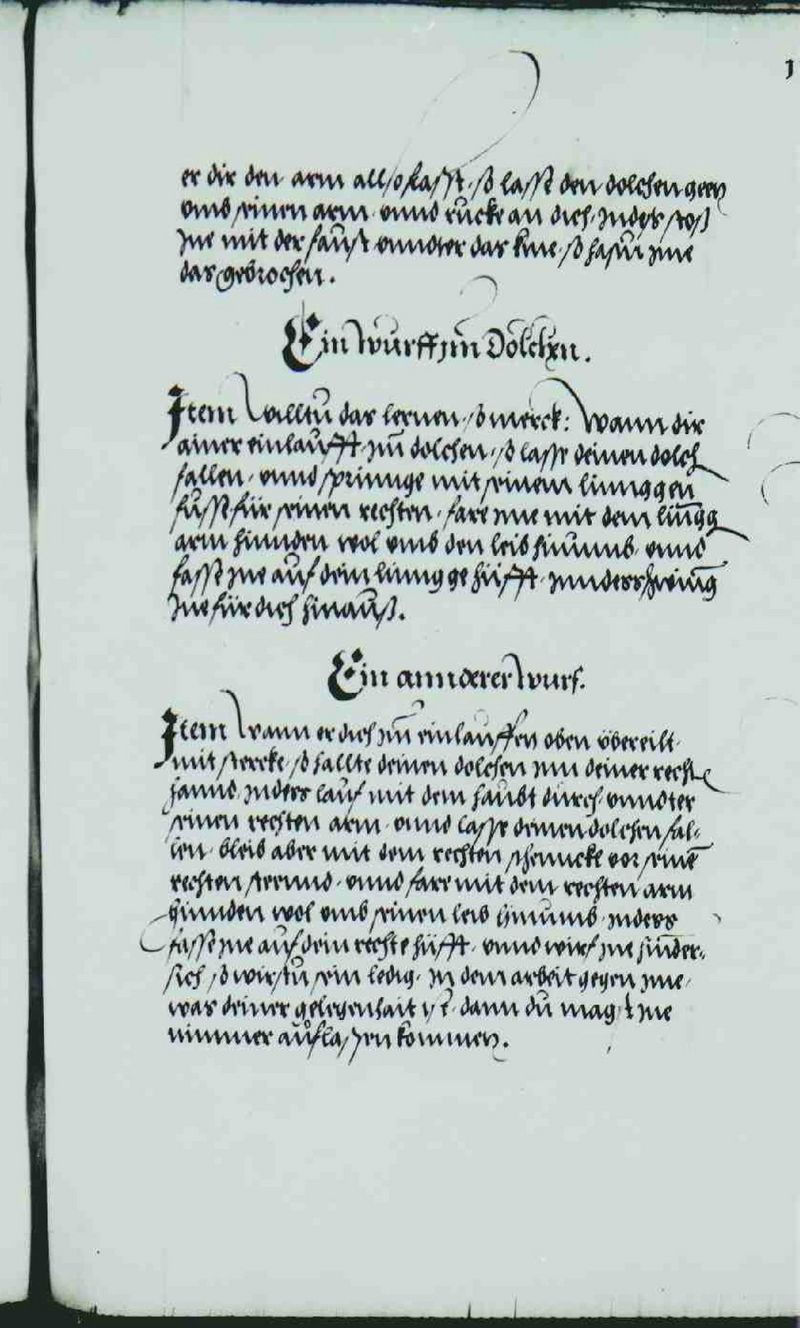 er dir den arm allso fasst, so lasst den dolchen geen
umb seinen arm, unnd rucke an dich, Inders stoß
Ine mit der faust unndter das knie, so hastu Ime
das gebrochen.
Ein wurff im Dolchen.
Item Willtu das lernen, so merck: Wann dir
ainer einlaufft, Im dolchen, so lasse deinen dolch
fallen, unnd sprinnge mit seinem linnggen
fusst für seinen rechten, fare Ime mit dem lingg
arm hinnden wol umb den leib hinumb, unnd
fasse Ine auf dein linngge hüfft, Innders schwing
Ine für dich hinauß.
Ein annderer wurf.
Item Wann er dich Im einlauffen oben übereilt
mit stercke, so hallte deinen dolchen Inn deiner recht
hannd, Inders lauf mit dem haubt durch unndter
seinen rechten arm, unnd lasse deinen dolchen fal-
len, bleib aber mit dem rechten schennckl vor seinē
rechten steennd, unnd fare mit dem rechten arm
hinnden wol umb seinen leib hinumb, Inders
fasse Ine auf dein rechte hüfft, unnd wirf Ine hinnder-
sich, so wirstu sein ledig, In dem arbeit gegen Ime,
was deiner gelegenhait ist, dann du magst Ine
nimmer auflassen kommen.